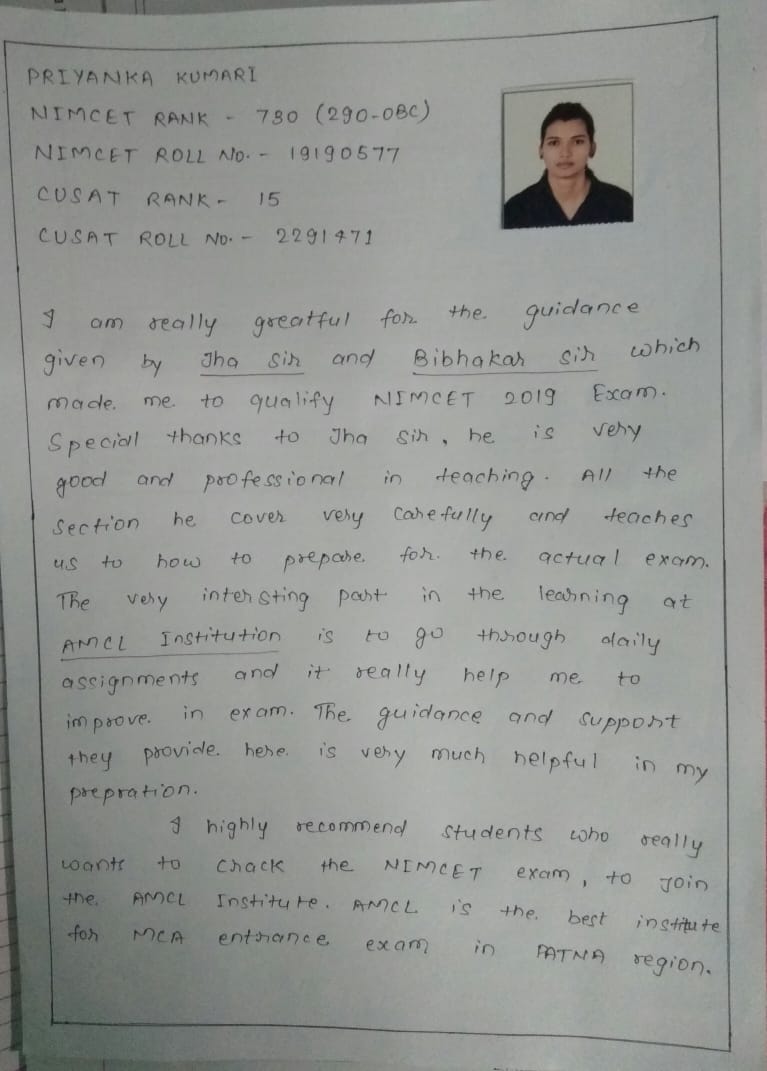 PRIYANKA KUMARI
NIMCET RANK - 780 (290-OBC)
NIMCET ROLL NO. - 19190577
CUSAT RANK - 15
CUSAT ROLL NO. - 2291471
I am really greatful for the guidance
given by Jha Sir and Bibhakar Sir which
made me to qualify NIMCET 2019 Exam.
Special thanks to Jha Sir, he is very
good and professional in teaching. All the
section he cover very carefully and teaches
us to how to prepare for the actual exam.
The very intersting part in the learning at
AMCL Institution is to go through daily
assignments and it really help me to
improve in exam. The guidance and support
they provide here is very much helpful in my
prepration.
I highly recommend students who really
wants to chack the NIMCET exam, to Join
the AMCL Institute. AMCL is the best institute
for MCA entrance exam in PATNA region.